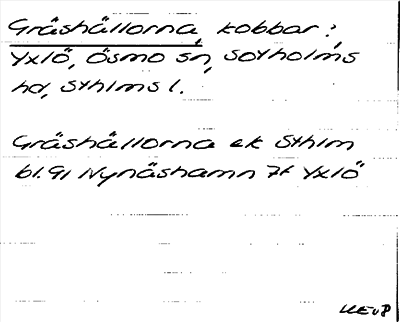 Gråshällorna, kobbar i,
Yxlö, Ösmo sn, Sotholms
hd, Sthlms l.
Gråshällorna ek Sthlm
bl. 91 Nynäshamn 7f Yxlö